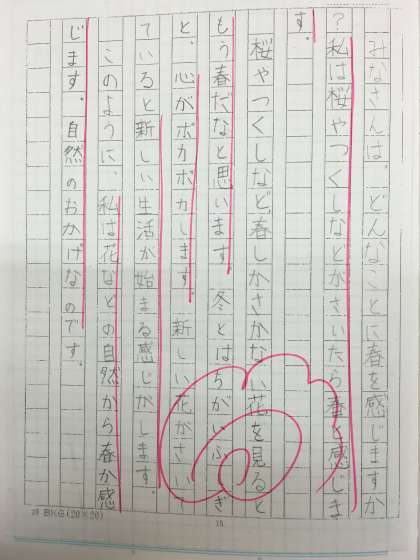 みなさんは、どんなことに春を感じますか
？私は桜やつくしなどがさいたら春を感じま
す。
桜やつくしなど、春しかさかない花を見ると、
もう春だなと思います。冬とはちがいふしぎ
と、心がポカポカします。新しい花がさい
ていると新しい生活が始まる感じがします。
このように、私は花などの自然から春が感
じます。自然のおかげなのです。
15